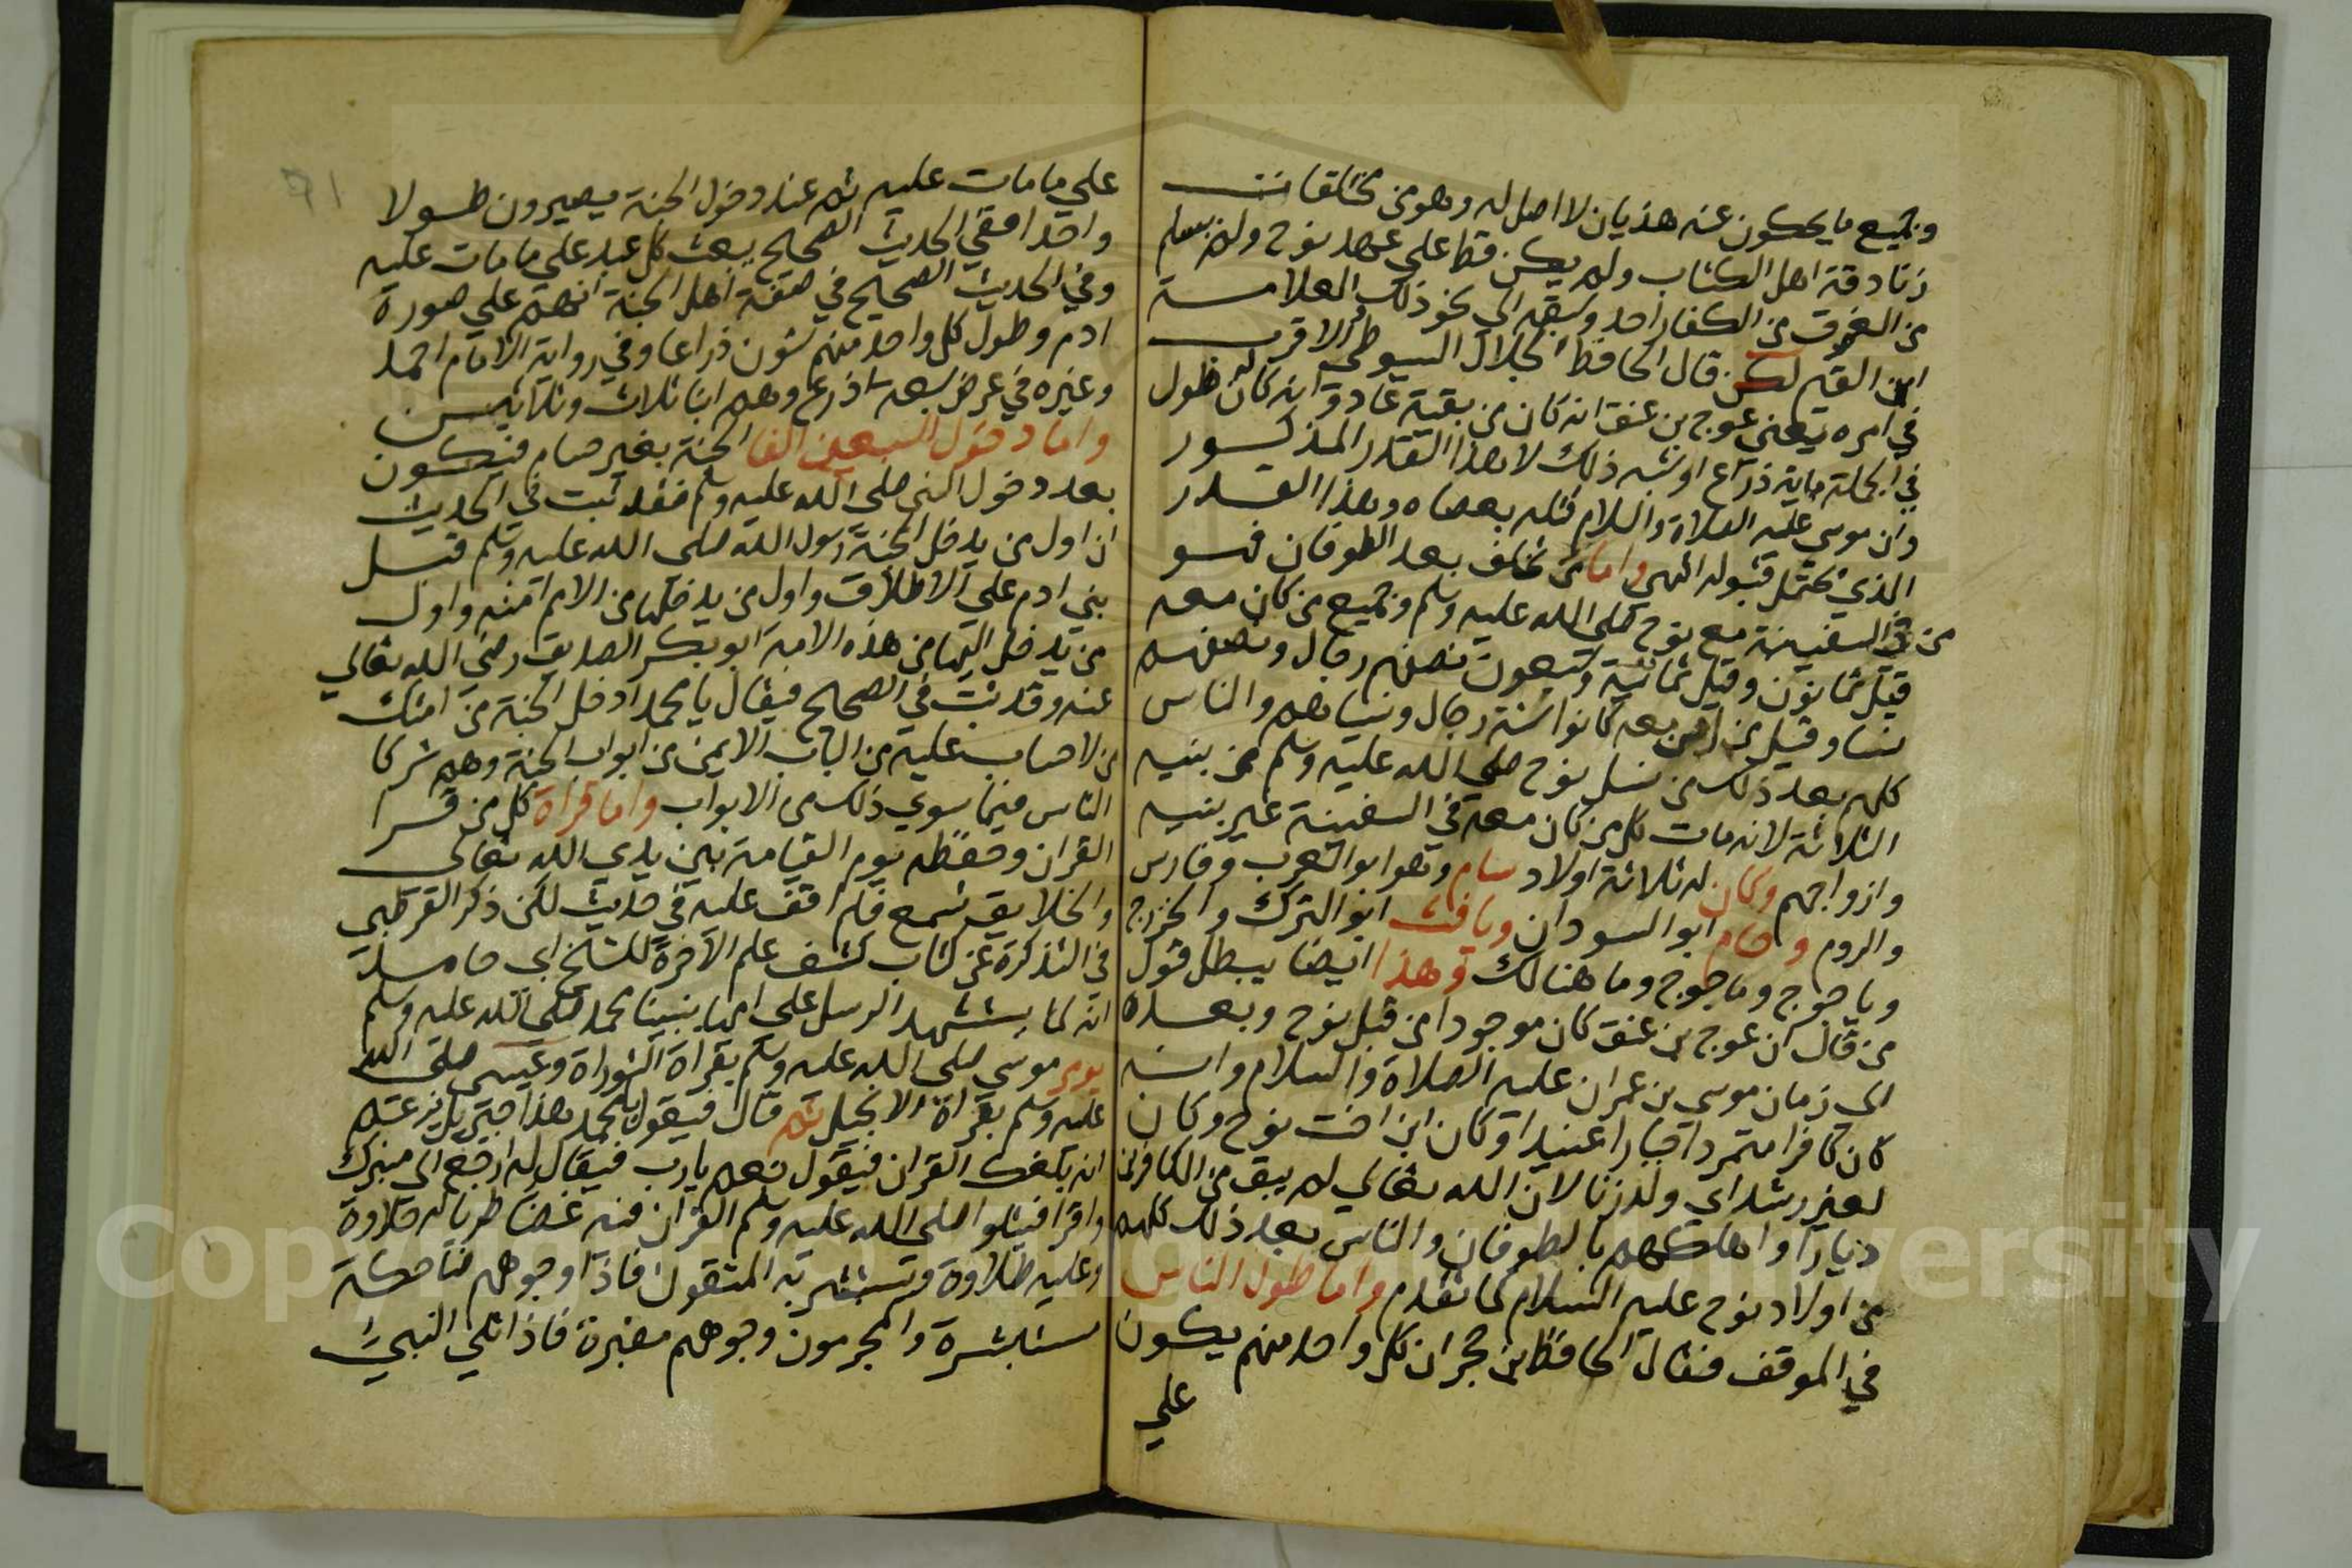 وجميع ما يحكون عنه هذيان لا اصل له وهو من مختلقات
زنادقة اهل الكتاب ولم يكن قط على عهد نوح ولم يسلم
من الغرق من الكفار احد وسبقه الى نحو ذلك العلامة
ابن القيم لكن قال الحافظ الجلال السيوطي والاقرب
في امره يعني عوج بن عنق انه كان من بقية عاد وانه كان له طول
في الجملة ماية ذراع او شبه ذلك لا هذا القدر المذكور
وان موسى عليه الصلاة والسلام قتله بعصاه وهذا القدر
الذي يحتمل قبوله انتهى واما من تخلف بعد الطوفان فهو
من في السفينة مع نوح صلى الله عليه وسلم وجميع من كان معه
قيل ثمانون وقيل ثمانية وسبعون نصفهم رجال ونصفهم
نسا وقيل من امن معه كانوا ستة رجال ونساهم والناس
كلهم بعد ذلك من نسل نوح صلى الله عليه وسلم من بنيه
الثلاثة لانه مات كل من كان معه في السفينة غير بنيه
وازواجهم وكان له ثلاثة اولاد سام وهو ابو العرب وفارس
والروم وحام ابو السودان ويافث ابو الترك والخزرج
وياجوج وماجوج وما هنالك وهذا ايضا يبطل قول
من قال ان عوج بن عنق كان موجودا من قبل نوح وبعده
الى زمان موسى بن عمران عليه الصلاة والسلام وانه
كان كافرا متمردا جبارا عنيدا وكان ابن اخت نوح وكان
لغير رشد اي ولد زنا لان الله تعالي لم يبق من الكافرين
ديارا واهلكهم بالطوفان والناس بعد ذلك كلهم
من اولاد نوح عليه السلام كما تقدم واما طول الناس
في الموقف فقال الحافظ بن حجر ان كل واحد منهم يكون
علي
علي ما مات عليه ثم عند دخول الجنة يصيرون طولا
واحدا ففي الحديث الصحيح يبعث كل عبد علي ما مات عليه
وفي الحديث الصحيح في صفة اهل الجنة انهم علي صورة
ادم وطول كل واحد منهم ستون ذراعا وفي رواية الامام احمد
وغيره في عرض سبعة اذرع وهم ابنا ثلاث وثلاثين
واما دخول السبعين الفا الجنة بغير حساب فيكون
بعد دخول النبي صلى الله عليه وسلم فقد ثبت في الحديث
ان اول من يدخل الجنة رسول الله صلى الله عليه وسلم قبل
بني ادم علي الاطلاق واول من يدخلها من الامم امته واول
من يدخل اليها من هذه الامة ابو بكر الصديق رضي الله تعالي
عنه وقد ثبت في الصحيح فيقال يا محمد ادخل الجنة من امتك
من لا حساب عليه من الباب الايمن من ابواب الجنة وهم شركا
الناس فيما سوي ذلك من الابواب واما قراة كل من قرا
القران وحفظه يوم القيامة بين يدي الله تعالى
والخلايق تسمع فلم اقف عليه في حديث لكن ذكر القرطبي
في التذكرة عن كتاب كشف علم الاخرة للشيخ ابي حامد
انه لما يستشهد الرسل علي امهم بنبينا محمد صلى الله عليه وسلم
يومر موسي صلى الله عليه وسلم بقراة التوراة وعيسى صلى الله
عليه وسلم بقراة الانجيل ثم قال فيقول يا محمد هذا جبريل يزعم
انه بلغك القران فيقول نعم يارب فيقال له ارجع الي منبرك
واقرا فيتلوا صلى الله عليه وسلم القران فيه غضا طريا له حلاوة
وعليه طلاوة وتستبشر به المتقون فاذا وجوههم ضاحكة
مستبشرة والمجرمون وجوههم مغبرة فاذا تلي النبي